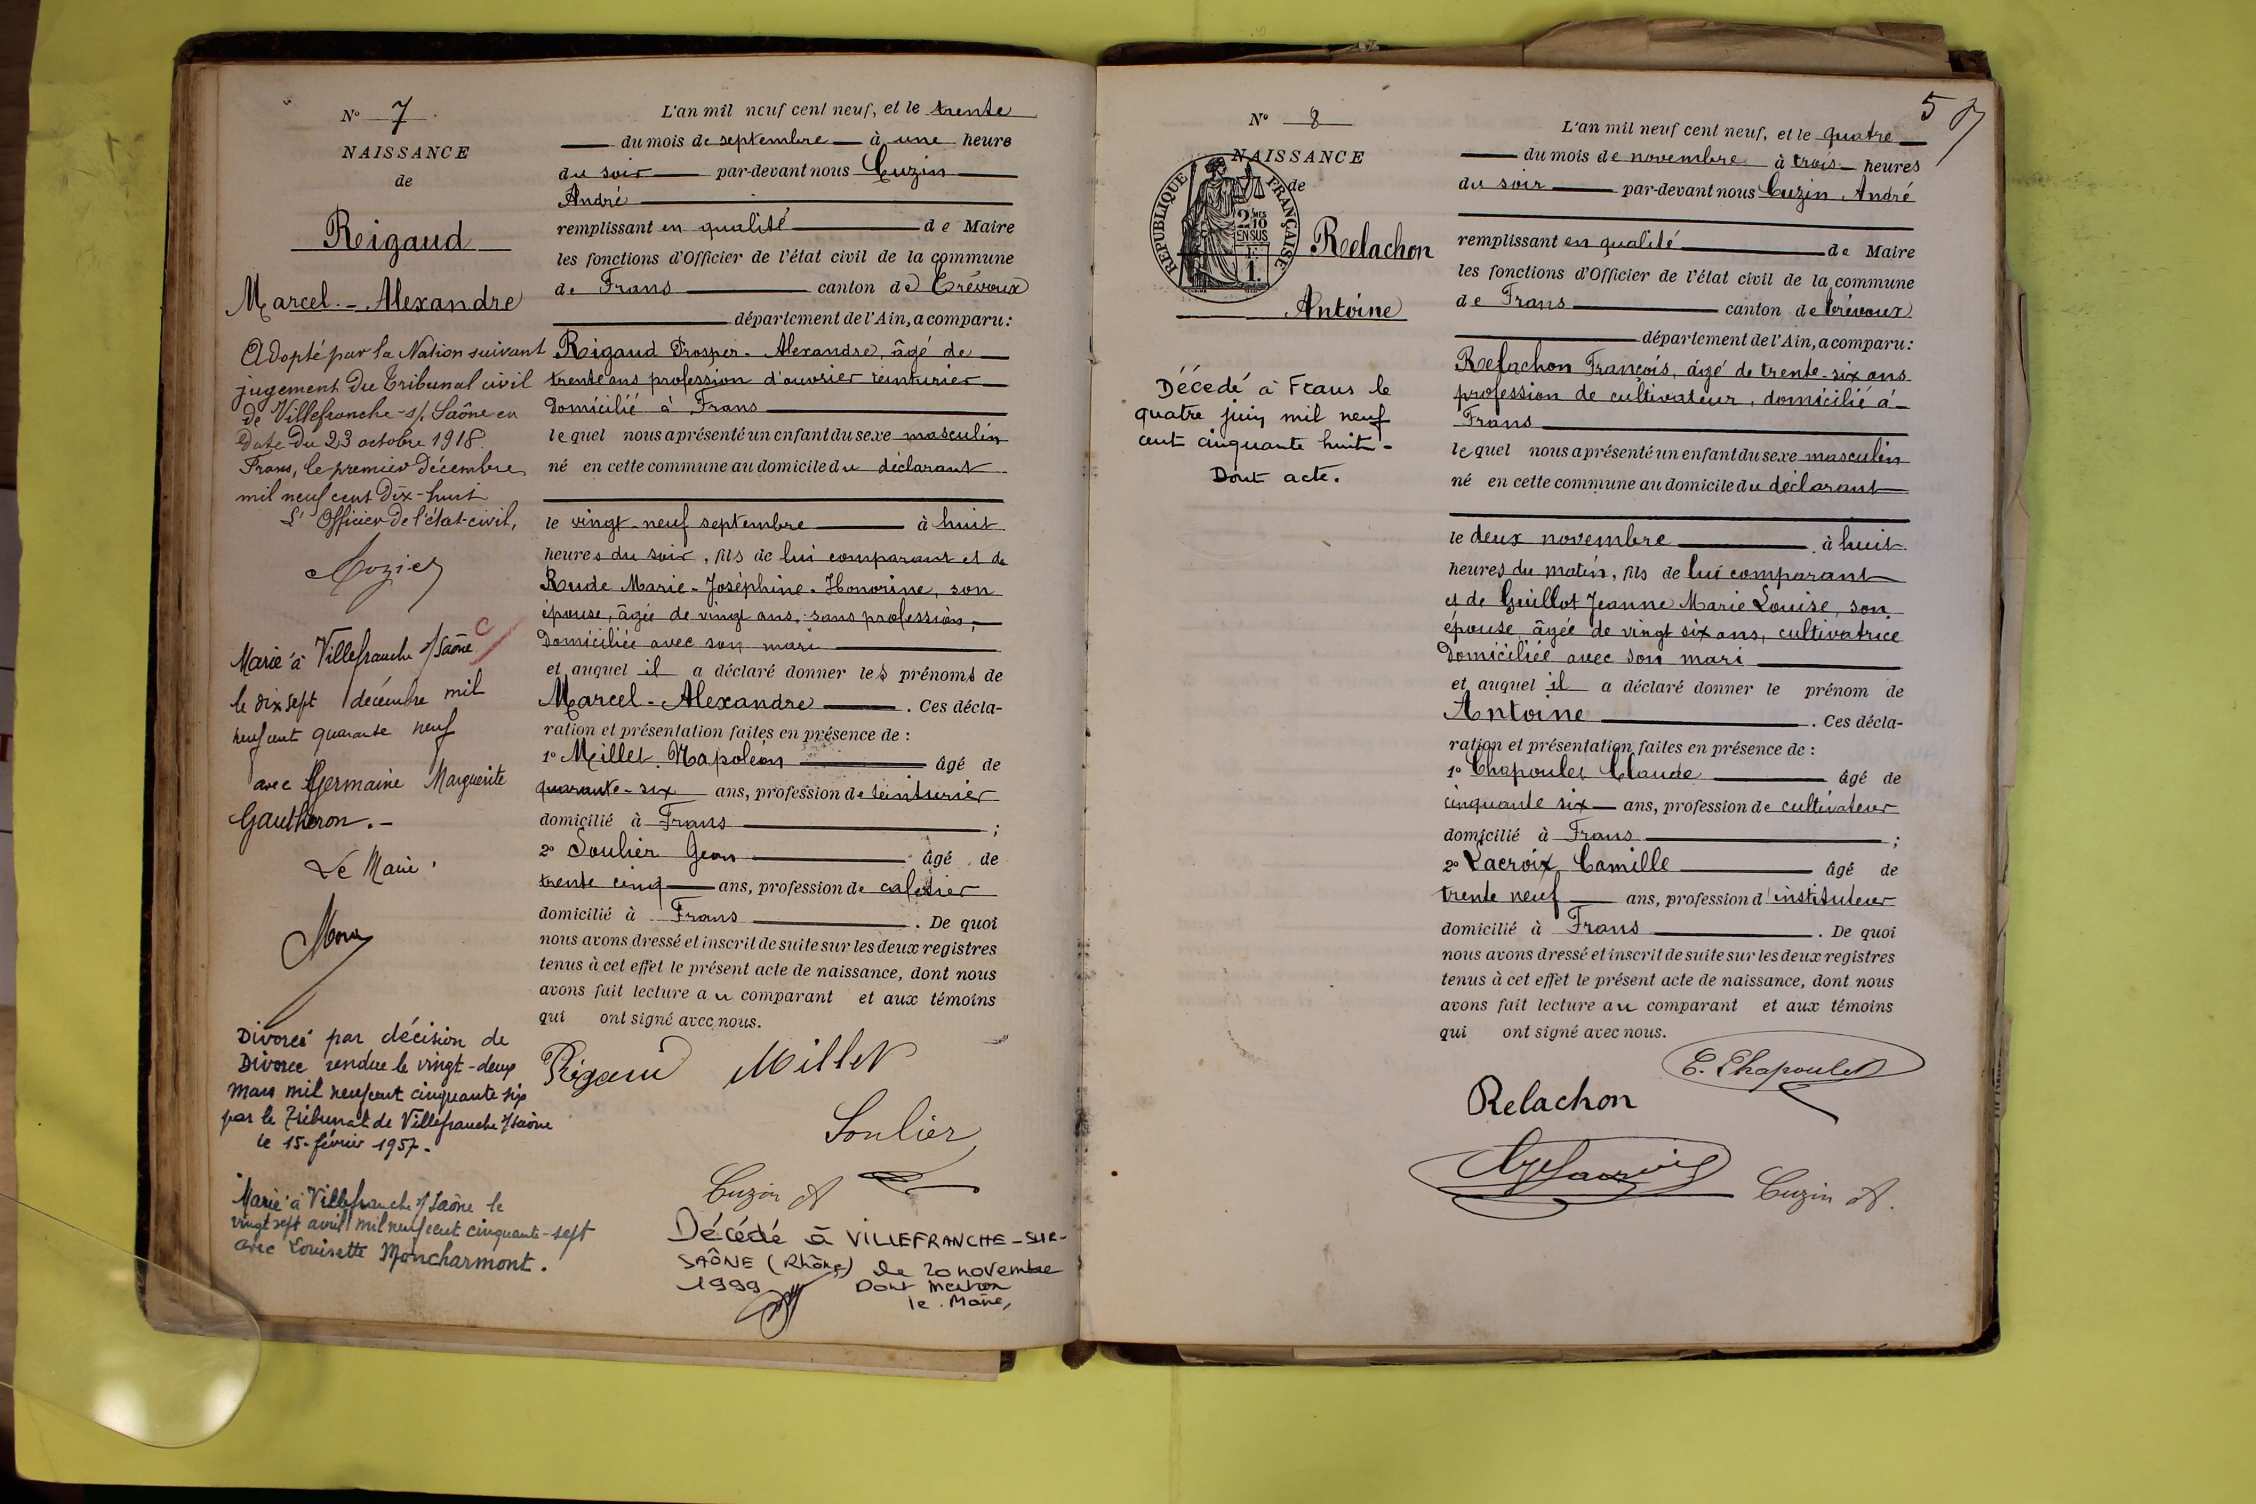 N° 7
NAISSANCE
de
Reigaud
Marcel - Alexandre
Adopté par la Nation suivant
jugement du Tribunal civil
de Villefranche-s/Saône en
date du 23 octobre 1918
Frans, le premier décembre
mil neuf cent dix-huit
L'Officier de l'état-civil,
Marié à Villefranche s/Saône
le dix sept décembre mil
neuf cent quarante neuf
avec Germaine Marguerite
Gautheron.-
Le Maire
Divorcé par décision de
Divorce rendue le vingt-deux
mars mil neuf cent cinquante six
par le Tribunal de Villefranche s/Saône
le 15 février 1957.
Marié à Villefranche s/Saône le
vingt sept avril mil neuf cent cinquante-sept
avec Louisette Moncharmont.
L'an mil neuf cent neuf, et le trente
du mois de septembre à une heure
du soir par-devant nous Cuzin
André
remplissant en qualité de Maire
les fonctions d'Officier de l'état civil de la commune
de Frans canton de Trévoux
département de l'Ain, a comparu:
Rigaud Prosper-Alexandre, âgé de
trente ans profession d'ouvrier teinturier
domicilié à Frans
lequel nous a présenté un enfant du sexe masculin
né en cette commune au domicile du déclarant
le vingt-neuf septembre à huit
heures du soir, fils de lui comparant et de
Rude Marie-Joséphine-Honorine, son
épouse, âgée de vingt ans, sans profession,
domiciliée avec son mari
et auquel il a déclaré donner les prénoms de
Marcel-Alexandre. Ces décla-
ration et présentation faites en présence de :
1° Millet Napoléon âgé de
quarante-six ans, profession de teinturier
domicilié à Frans ;
2° Soulier Jean âgé de
trente cinq ans, profession de cafetier
domicilié à Frans. De quoi
nous avons dressé et inscrit de suite sur les deux registres
tenus à cet effet le présent acte de naissance, dont nous
avons fait lecture au comparant et aux témoins
qui ont signé avec nous.
Rigaud Millet
Soulier
Cuzin A
Décédé à VILLEFRANCHE-SUR-
SAÔNE (Rhône) le 20 novembre
1999 Dont mention
le Maire,
5
N° 8
NAISSANCE
de
RÉPUBLIQUE FRANÇAISE
2/10
EN SUS
1F
Relachon
Antoine
Décédé à Frans le
quatre juin mil neuf
cent cinquante huit -
Dont acte.
L'an mil neuf cent neuf, et le quatre
du mois de novembre à trois heures
du soir par-devant nous Cuzin André
remplissant en qualité de Maire
les fonctions d'Officier de l'état civil de la commune
de Frans canton de Trévoux
département de l'Ain, a comparu:
Relachon François, âgé de trente-six ans
profession de cultivateur, domicilié à
Frans
lequel nous a présenté un enfant du sexe masculin
né en cette commune au domicile du déclarant
le deux novembre à huit
heures du matin, fils de lui comparant
et de Guillot Jeanne Marie Louise, son
épouse âgée de vingt six ans, cultivatrice
domiciliée avec son mari
et auquel il a déclaré donner le prénom de
Antoine. Ces décla-
ration et présentation faites en présence de :
1° Chapoulet Claude âgé de
cinquante six ans, profession de cultivateur
domicilié à Frans ;
2° Lacroix Camille âgé de
trente neuf ans, profession d'instituteur
domicilié à Frans. De quoi
nous avons dressé et inscrit de suite sur les deux registres
tenus à cet effet le présent acte de naissance, dont nous
avons fait lecture au comparant et aux témoins
qui ont signé avec nous.
C. Chapoulet
Relachon
Cuzin A.